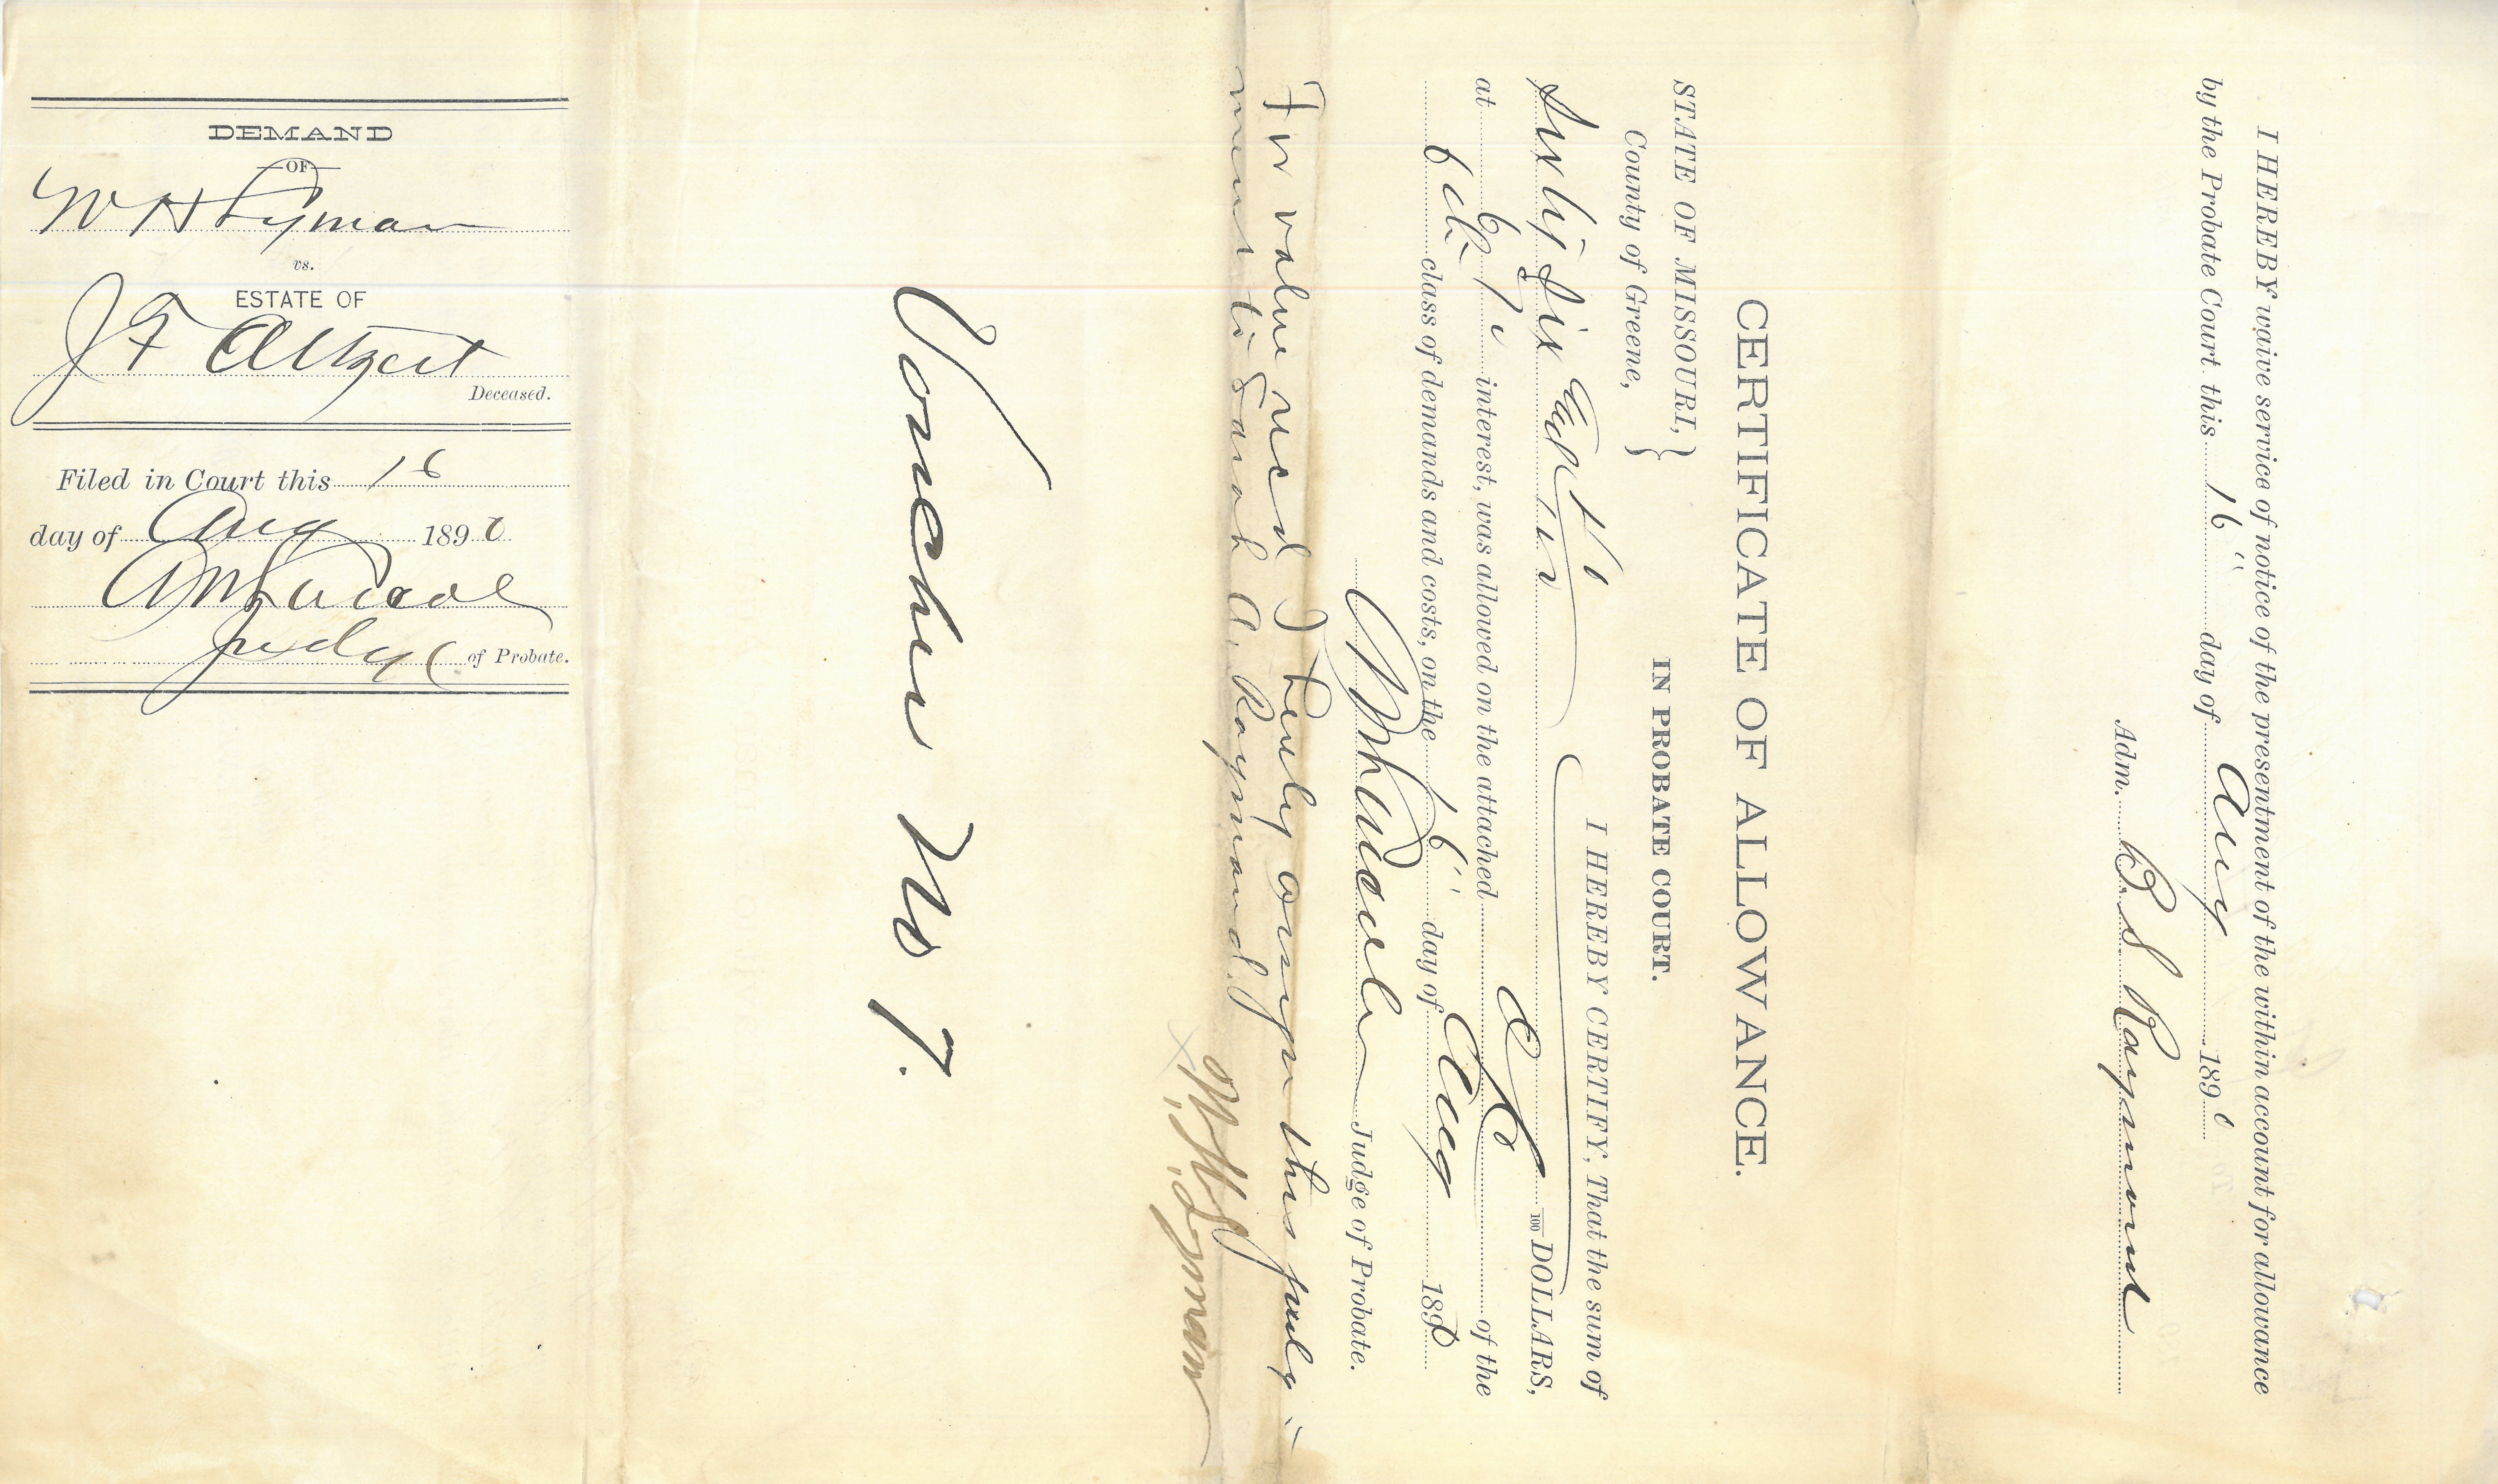 DEMAND
OF
W H Lyman
vs.
ESTATE OF
J F Altgelt
Deceased.
Filed in Court this 16
day of Aug 1890
Judge of Probate.
Voucher No 7.
I HEREBY waive service of notice of the presentment of the within account for allowance
by the Probate Court this 16" day of Aug 1890
Adm. B S Raymond
CERTIFICATE OF ALLOWANCE.
STATE OF MISSOURI,
County of Greene, }
IN PROBATE COURT.
I HEREBY CERTIFY, That the sum of
Sixty Six and 100 DOLLARS,
at 6% interest, was allowed on the attached of the
6th class of demands and costs, on the 16" day of Aug 1890
Judge of Probate.
For value recd I hereby assign this judg-
ment to Sarah A. Raymond
W. H. Lyman